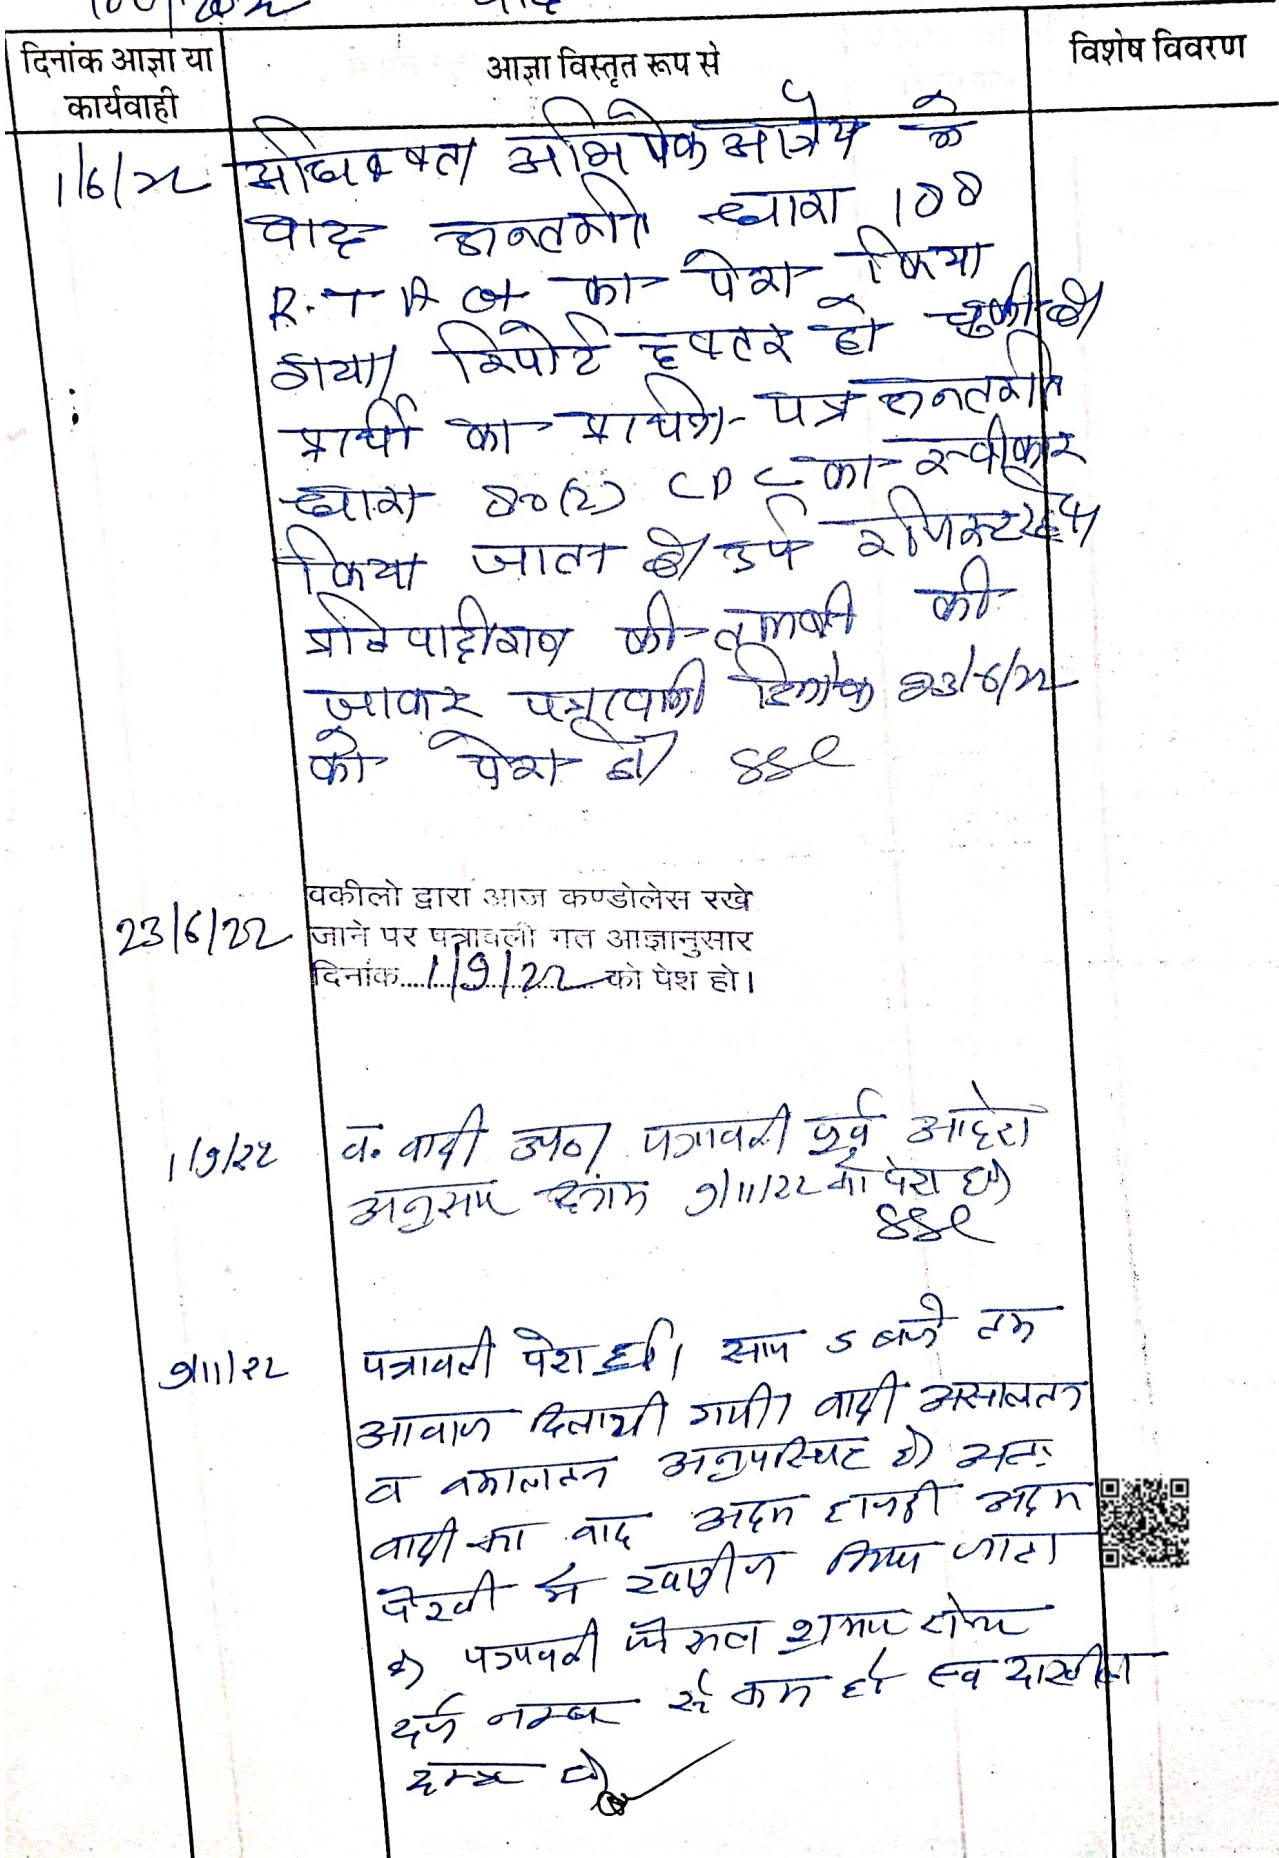 दिनांक आज्ञा या
कार्यवाही
आज्ञा विस्तृत रूप से
विशेष विवरण
1/6/22 अधिवक्ता अभिषेक आत्रेय ने
वाद अन्तर्गत धारा 188
R.T Act का पेश किया
गया। रिपोर्ट दफ्तर हो चुकी है।
प्रार्थी का प्रार्थना-पत्र अन्तर्गत
धारा 80(2) CPC का स्वीकार
किया जाता है। दर्ज रजिस्टर हो।
प्रतिवादीगण की तलबी की
जाकर पत्रावली दिनांक 23/6/22
को पेश हो।
23/6/22 वकीलो द्वारा आज कण्डोलेस रखे
जाने पर पत्रावली गत आज्ञानुसार
दिनांक....1/9/22 को पेश हो।
1/9/22 व. वादी उप०। पत्रावली पूर्व आदेश
अनुसार दिनांक 9/11/22 को पेश हो।
9/11/22 पत्रावली पेश हुई। सायं 5 बजे तक
आवाज दिलायी गयी। वादी असालतन
व वकालतन अनुपस्थित है। अतः
वादी का वाद अदम हाजरी अदम
पैरवी में खारीज किया जाता
है। पत्रावली फैसल शुमार होकर
दर्ज नम्बर से कम हो व दाखील
दफ्तर हो।